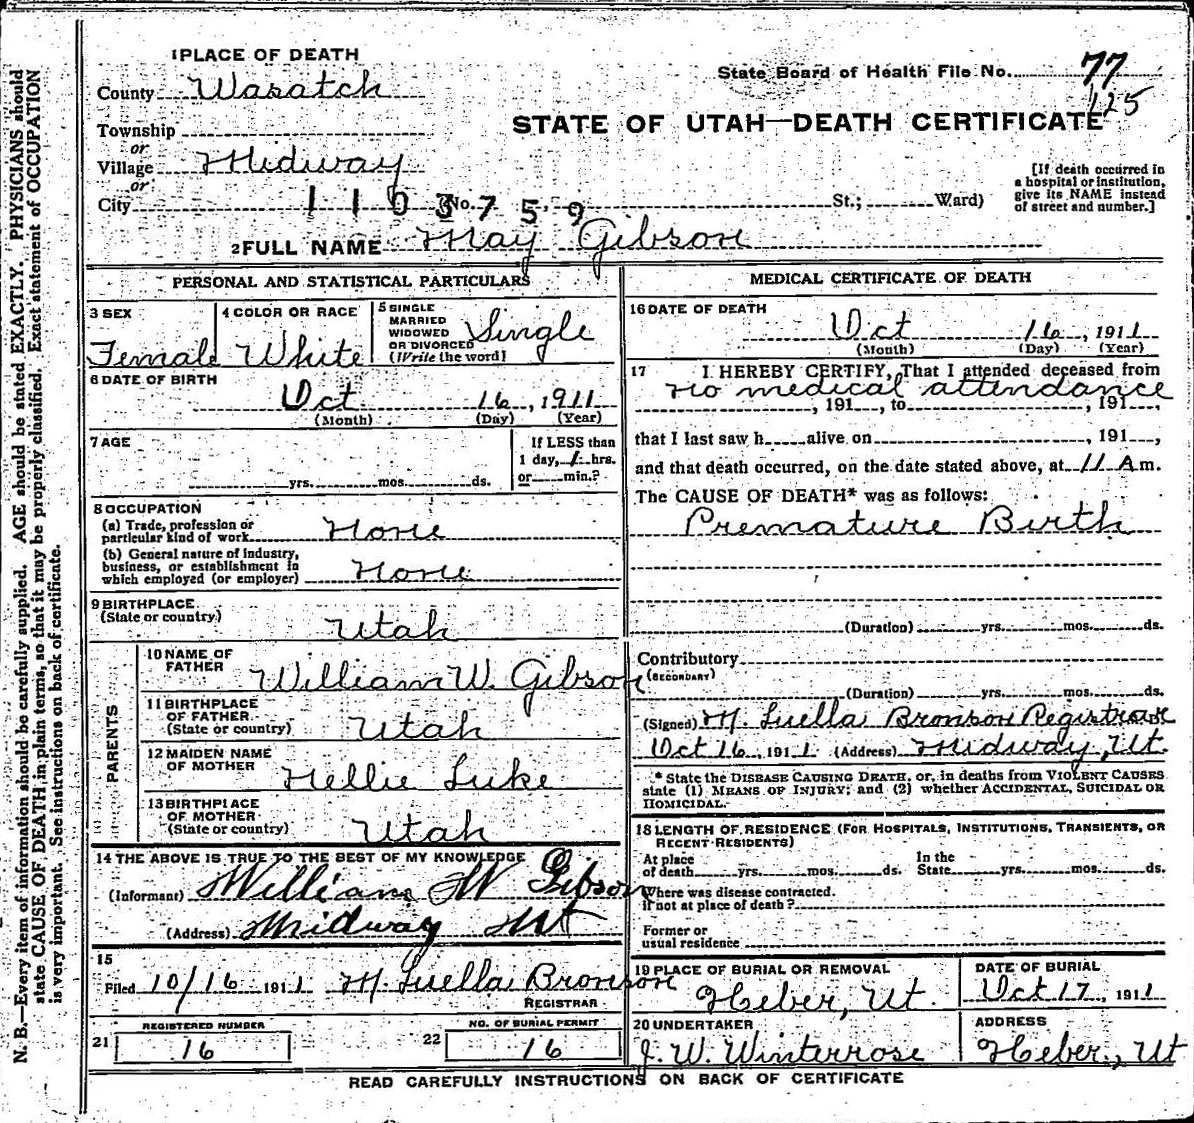 1 PLACE OF DEATH
County Wasatch
Township
or
Village Midway
or
City No. St.; Ward)
1103759
State Board of Health File No. 77
125
STATE OF UTAH—DEATH CERTIFICATE
[If death occurred in
a hospital or institution,
give its NAME instead
of street and number.]
2 FULL NAME May Gibson
PERSONAL AND STATISTICAL PARTICULARS
3 SEX
Female
4 COLOR OR RACE
White
5 SINGLE
MARRIED
WIDOWED
OR DIVORCED
(Write the word)
Single
6 DATE OF BIRTH
Oct 16, 1911
(Month) (Day) (Year)
7 AGE
yrs. mos. ds.
If LESS than
1 day, 1 hrs.
or min.?
8 OCCUPATION
(a) Trade, profession or
particular kind of work None
(b) General nature of industry,
business, or establishment in
which employed (or employer) None
9 BIRTHPLACE
(State or country)
Utah
PARENTS
10 NAME OF
FATHER
William W. Gibson
11 BIRTHPLACE
OF FATHER
(State or country) Utah
12 MAIDEN NAME
OF MOTHER
Nellie Luke
13 BIRTHPLACE
OF MOTHER
(State or country) Utah
14 THE ABOVE IS TRUE TO THE BEST OF MY KNOWLEDGE
(Informant) William W Gibson
(Address) Midway Ut
15
Filed 10/16 1911 M. Luella Bronson
REGISTRAR
REGISTERED NUMBER
21 16
NO. OF BURIAL PERMIT
22 16
MEDICAL CERTIFICATE OF DEATH
16 DATE OF DEATH
Oct 16, 1911
(Month) (Day) (Year)
17 I HEREBY CERTIFY, That I attended deceased from
No medical attendance
, 191 , to , 191 ,
that I last saw h alive on , 191 ,
and that death occurred, on the date stated above, at 11 A m.
The CAUSE OF DEATH* was as follows:
Premature Birth
(Duration) yrs. mos. ds.
Contributory
(SECONDARY)
(Duration) yrs. mos. ds.
(Signed) M. Luella Bronson Registrar
Oct 16, 1911 (Address) Midway, Ut.
* State the DISEASE CAUSING DEATH, or, in deaths from VIOLENT CAUSES
state (1) MEANS OF INJURY; and (2) whether ACCIDENTAL, SUICIDAL OR
HOMICIDAL.
18 LENGTH OF RESIDENCE (FOR HOSPITALS, INSTITUTIONS, TRANSIENTS, OR
RECENT RESIDENTS)
At place
of death yrs. mos. ds.
In the
State yrs. mos. ds.
Where was disease contracted.
if not at place of death?
Former or
usual residence
19 PLACE OF BURIAL OR REMOVAL
Heber, Ut.
DATE OF BURIAL
Oct 17, 1911
20 UNDERTAKER
J. W. Winterrose
ADDRESS
Heber, Ut
READ CAREFULLY INSTRUCTIONS ON BACK OF CERTIFICATE
N. B.—Every item of information should be carefully supplied. AGE should be stated EXACTLY. PHYSICIANS should
state CAUSE OF DEATH in plain terms, so that it may be properly classified. Exact statement of OCCUPATION
is very important. See instructions on back of certificate.